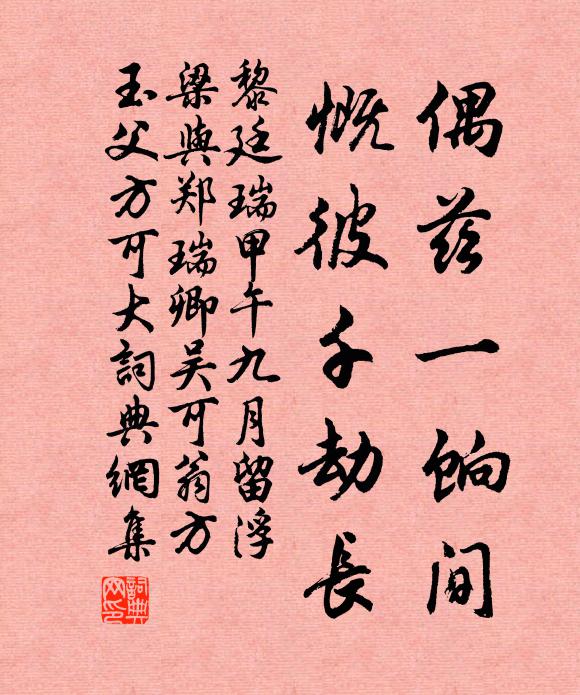 偶兹一餉间
慨彼千劫長
黎廷瑞甲午九月留浮
梁與郑瑞卿吴可翁方
玉父方可大詞典網集
詞典网印